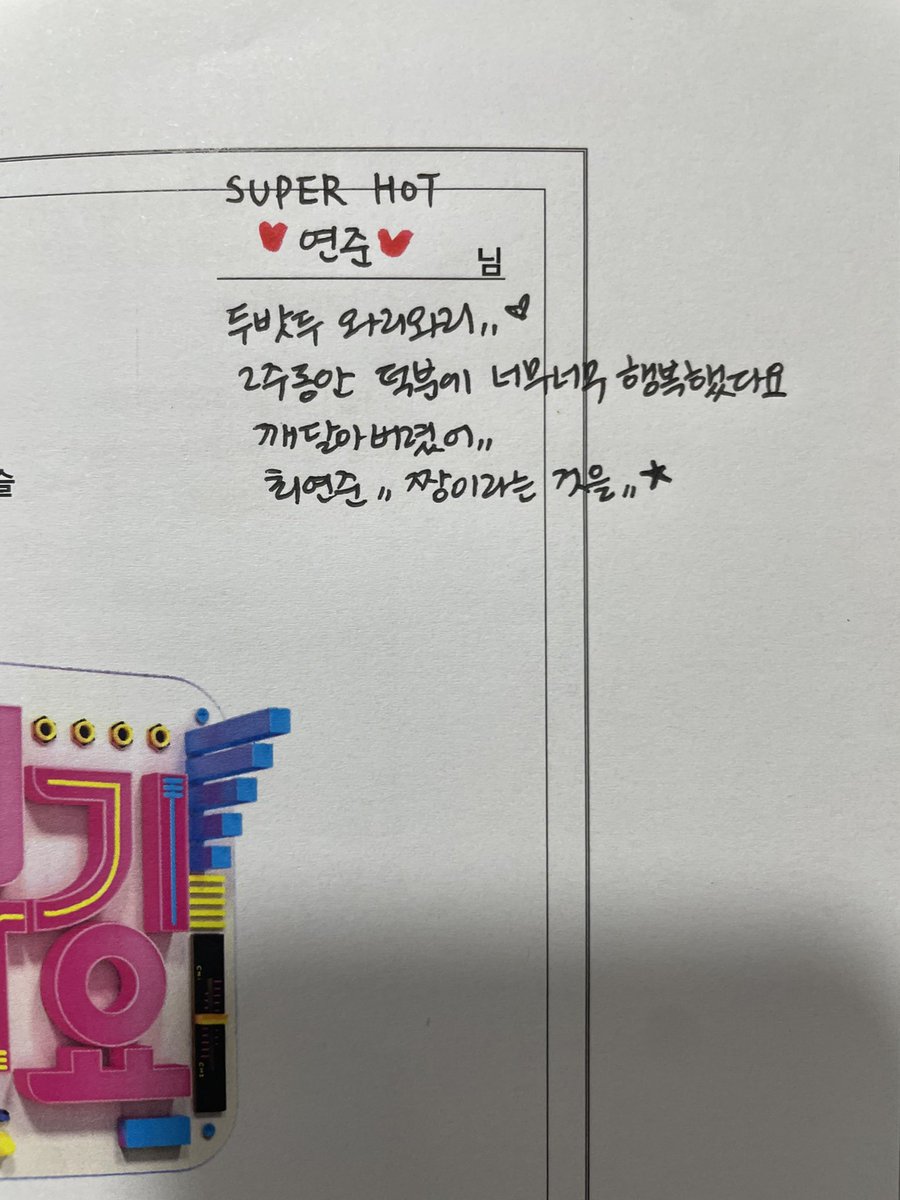 SUPER HOT
연준
님
두밧두 와리와리,,
2주동안 덕분에 너무너무 행복했다요
깨달아버렸어,,
최연준,, 짱이라는 것을,,
슬
기
요